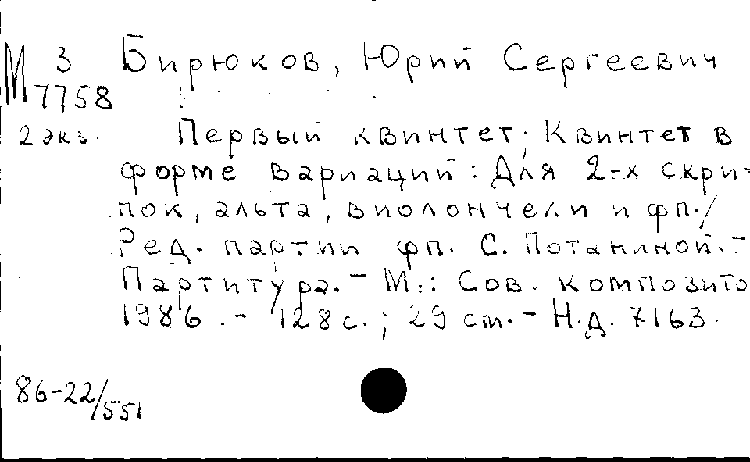 М 3 Бирюков, Юрий Сергеевич
7758
2 экз. Первый квинтет; Квинтет в
форме вариаций: Для 2-х скри-
пок, альта, виолончели и фп./
Ред. партии фп. С. Потаниной.-
Партитура.- М.: Сов. композито
1986.- 128 с.; 29 см.- Н.д. 7163.
86-22/551